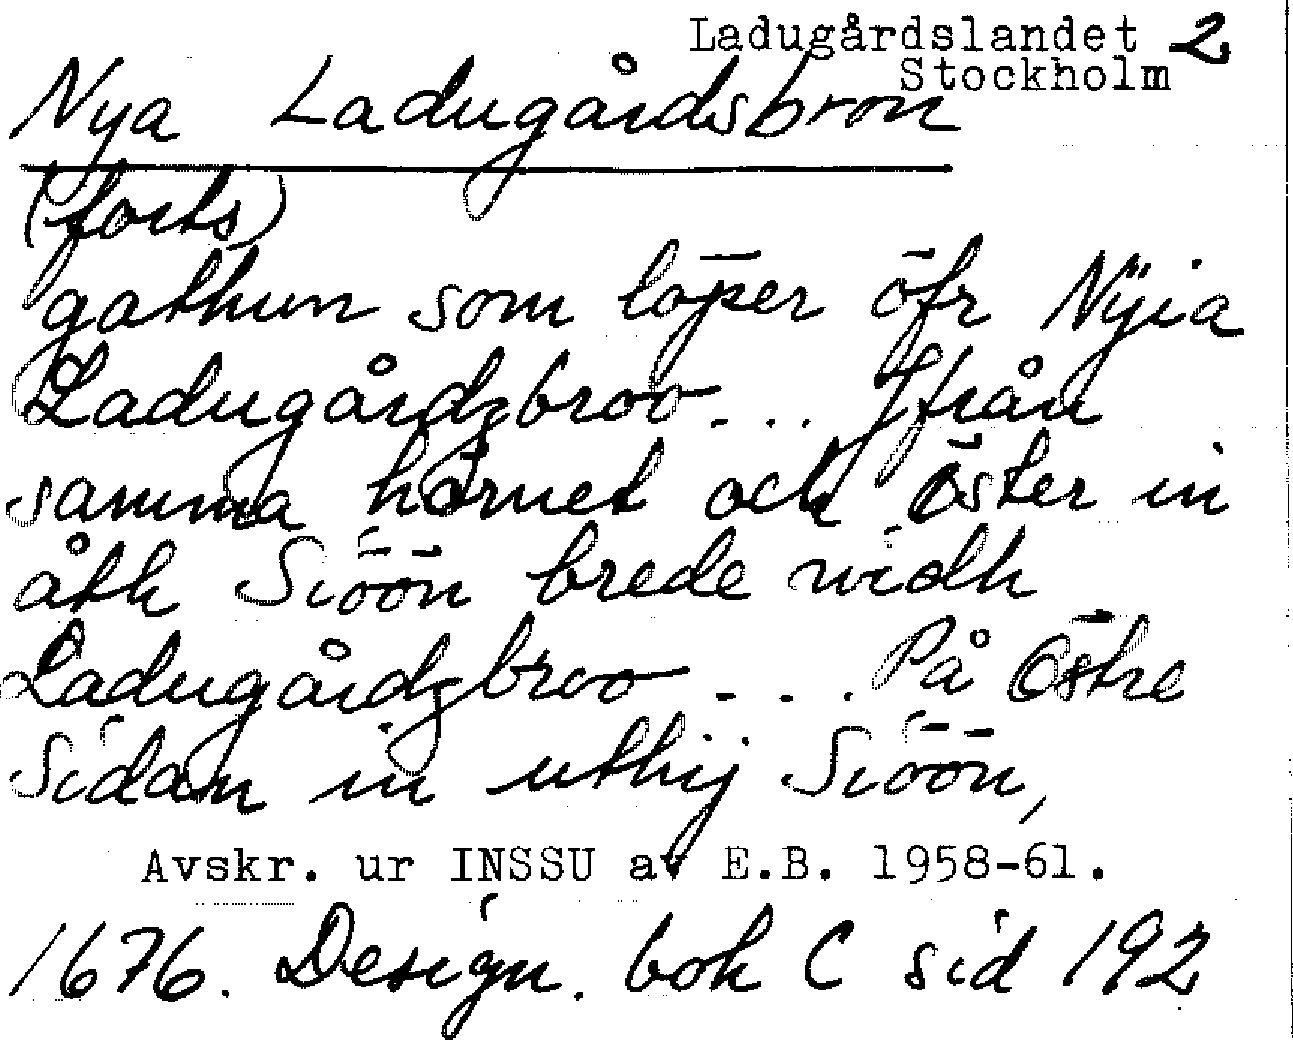 Ladugårdslandet 2
Stockholm
Nya Ladugårdsbron
(forts)
gathun som löper öfr Nÿia
Ladugårdzbroo... Ifrån
samma hörnet och öster in
åth Siöön brede widh
Ladugårdzbroo - . . . På Östre
Sidan in uthij Siöön,
Avskr. ur INSSU av E.B. 1958-61.
1676. Design. bok C sid 192